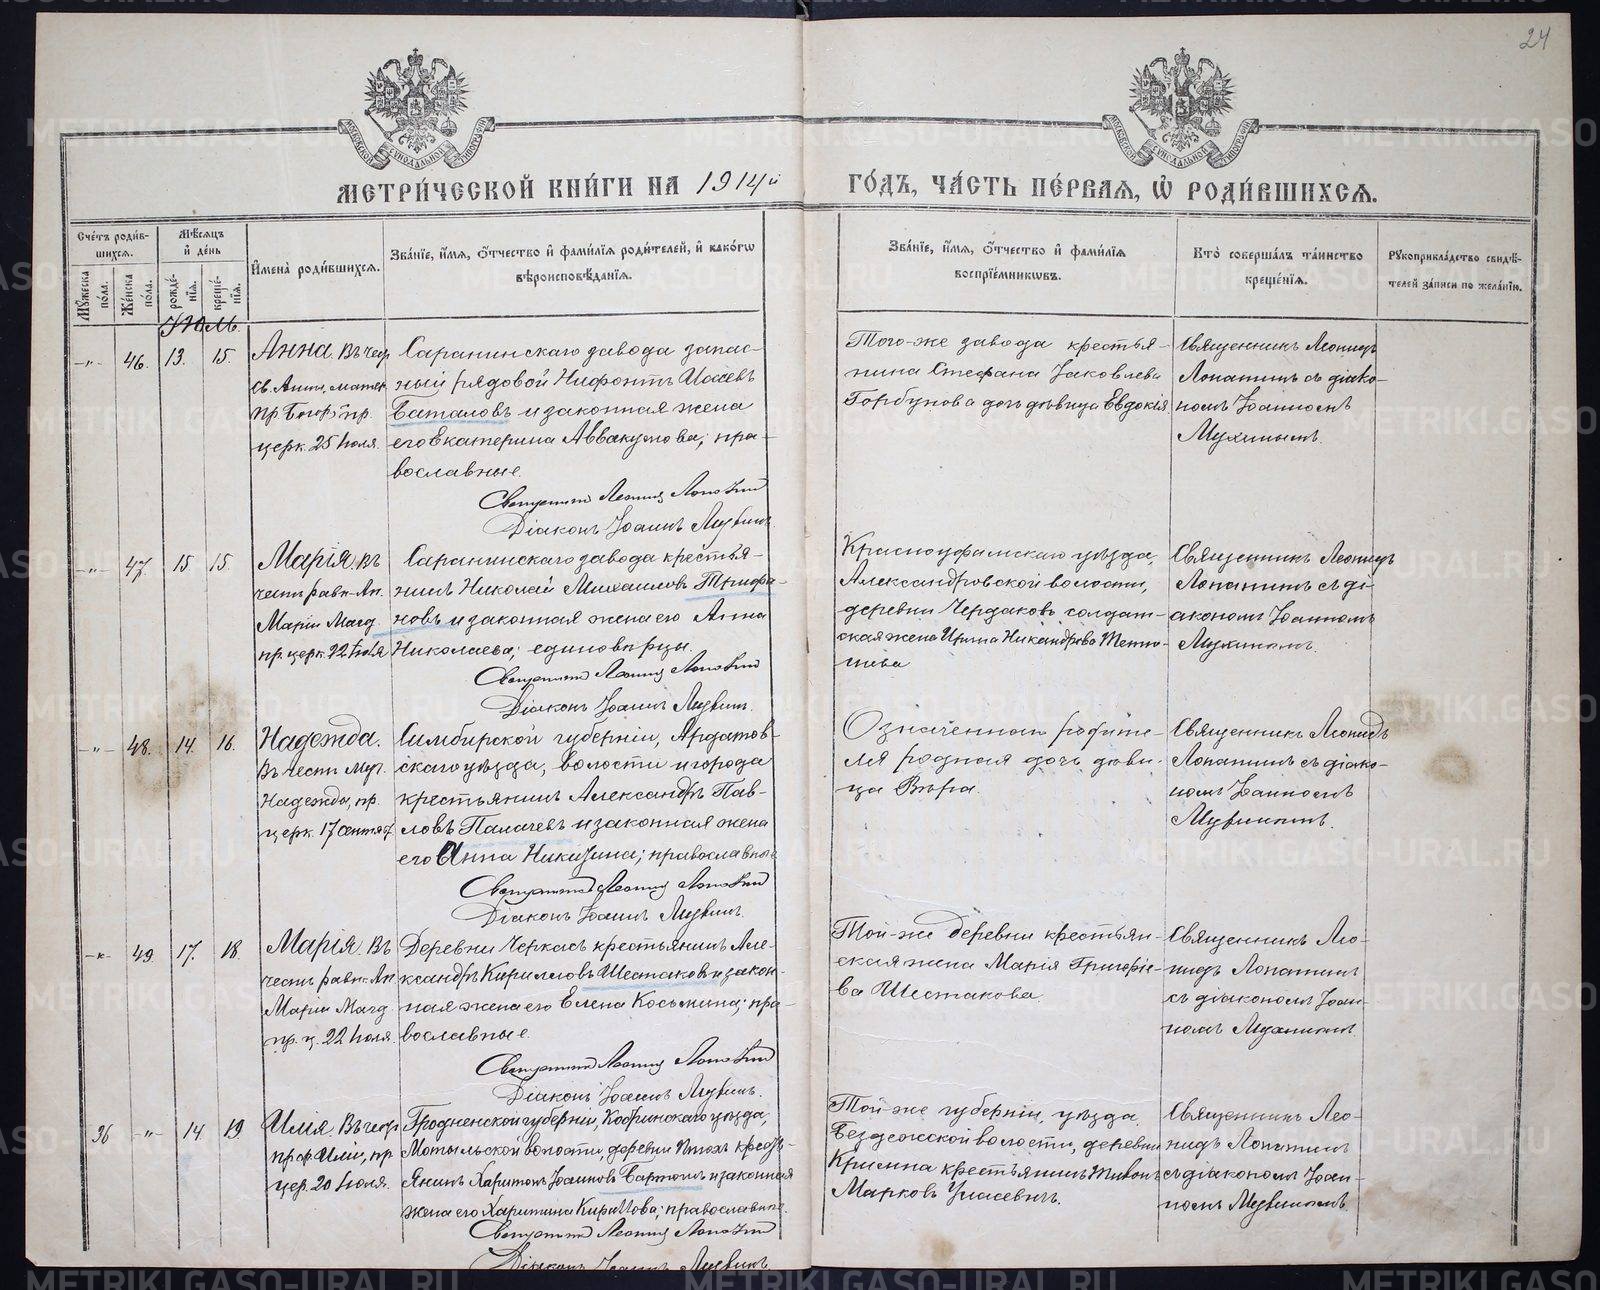 24
МОСКОВСКОЙ СѴНОДАЛЬНОЙ ТИПОГРАФІИ
МОСКОВСКОЙ СѴНОДАЛЬНОЙ ТИПОГРАФІИ
МЕТРИ́ЧЕСКОЙ КНИ́ГИ НА 1914й
ГО́ДЪ, ЧА́СТЬ ПЕ́РВАЯ, Ѡ҆ РОДИ́ВШИХСЯ.
Сче́тъ роди́в-
шихся.
Мꙋ́жеска по́ла.
Же́нска по́ла.
Мѣ́сяцъ
и҆ де́нь
рожде́-
нїя.
креще́-
нїя.
И҆мена̀ роди́вшихся.
Зва́нїе, и҆́мя, ѻ҆́тчество и҆ фами́лїя роди́телей, и҆ како́гѡ
вѣроисповѣ́данїя.
Зва́нїе, и҆́мя, ѻ҆́тчество и҆ фами́лїя
воспрїе́мникѡвъ.
Кто̀ соверша́лъ та́инство
креще́нїя.
Рꙋкоприкла́дство свидѣ́-
телей за́писи по жела́нїю.
Іюль.
-„- 46. 13. 15.
Анна. Въ чест
св. Анны, матер.
пр. Богор. пр.
церк. 25 Іюля.
Саранинскаго завода запас-
ный рядовой Нифонтъ Исаевъ
Баталовъ и законная жена
его Екатерина Аввакумова; пра-
вославные.
Священникъ Леонидъ Лопатин
Діаконъ Іоаннъ Мухинъ
Того-же завода крестья-
нина Стефана Іаковлева
Горбунова дочь дѣвица Евдокія
Священникъ Леонидъ
Лопатинъ съ діако-
номъ Іоанномъ
Мухинымъ.
-„- 47. 15 15.
Марія. Въ
честь равн. Ап.
Маріи Магд.
пр. церк. 22 Іюля
Саранинскаго завода крестья-
нинъ Николай Михаиловъ Трифа-
новъ и законная жена его Анна
Николаева; единовѣрцы.
Священникъ Леонид Лопатин
Діаконъ Іоаннъ Мухин.
Красноуфимскаго уѣзда,
Александровской волости,
деревни Чердаковъ солдат-
ская жена Ирина Никандрова Тетю-
шева
Священникъ Леонидъ
Лопатинъ съ ді-
акономъ Іоанномъ
Мухинымъ.
-„- 48. 14. 16.
Надежда.
Въ честь Муч.
Надежды, пр.
церк. 17 Сентяб.
Симбирской губерніи, Ардатов-
скаго уѣзда, волости и города
крестьянинъ Александръ Пав-
ловъ Палачевъ и законная жена
его Анна Никитина; православные
Священникъ Леонид Лопатин
Діаконъ Іоаннъ Мухин.
Означеннаго родите-
ля родная дочь дѣви-
ца Вѣра.
Священникъ Леонидъ
Лопатинъ съ діако-
номъ Іоанномъ
Мухинымъ.
-„- 49. 17. 18.
Марія. Въ
честь равн. Ап.
Маріи Магд.
пр. ц. 22 Іюля.
Деревни Черкасъ крестьянинъ Але-
ксандръ Кирилловъ Шестаковъ и закон-
ная жена его Елена Косьмина; пра-
вославные.
Священникъ Леонид Лопатин
Діаконъ Іоаннъ Мухинъ.
Той-же деревни крестьян-
ская жена Марія Григорie-
ва Шестакова.
Священникъ Лео-
нидъ Лопатинъ
съ діакономъ Іоан-
номъ Мухинымъ.
36 -„- 14. 19.
Илія. Въ чест
прор. Иліи, пр.
цер. 20 Іюля.
Гродненской губерніи, Кобринскаго уѣзда,
Мотыльской волости, деревни крестъ-
янинъ Харитонъ Іоанновъ и законная
жена его Харитина Кириллова; православные.
Священникъ Леонид Лопатин
Діаконъ Іоаннъ Мухинъ
Той-же губерніи, уѣзда,
Бездежской волости, деревни
крестьянинъ Тихонъ
Марковъ
Священникъ Лео-
нидъ Лопатинъ
съ діакономъ Іоан-
номъ Мухинымъ
METRIKI.GASO-URAL.RU